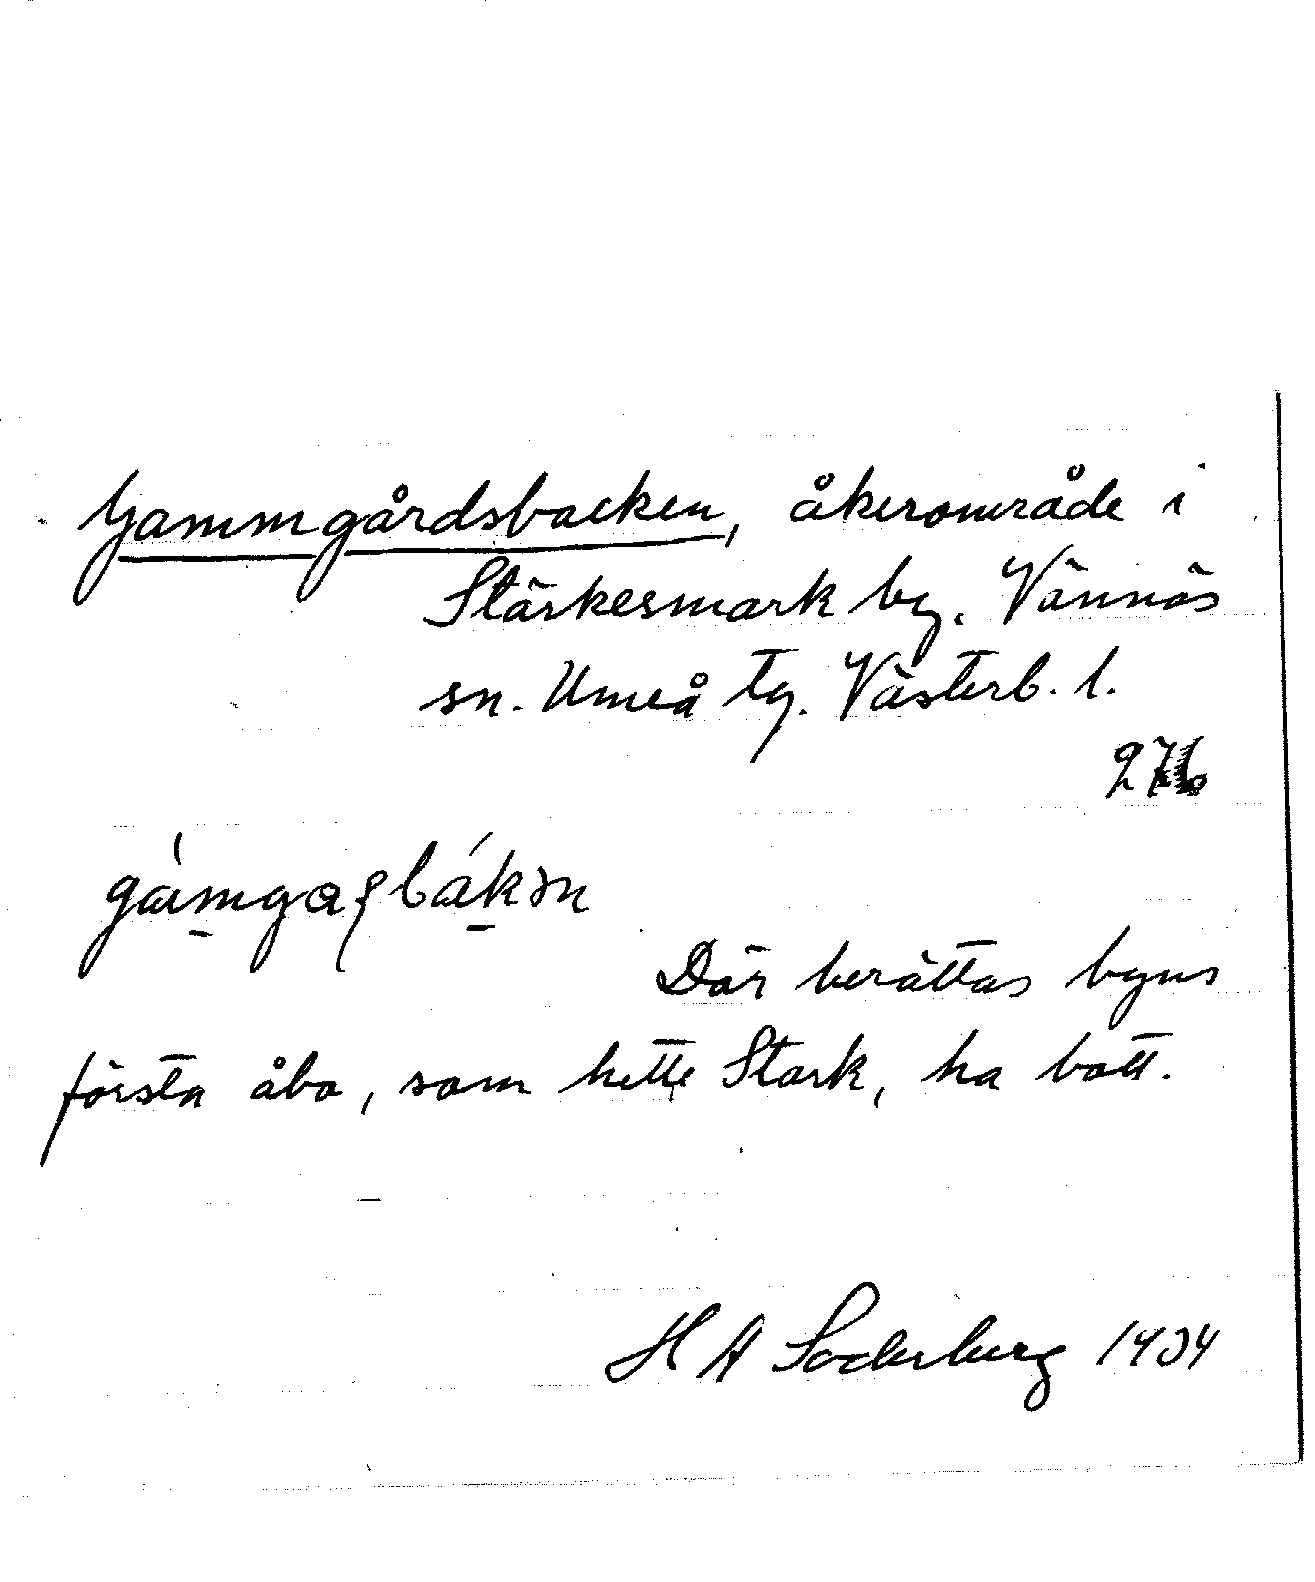 Gammgårdsbacken, åkerområde i
Stärkesmark by. Vännäs
sn. Umeå tg. Västerb. l.
276
Där berättas byns
första åbo, som hette Stark, ha bott.
H A Söderberg 1934